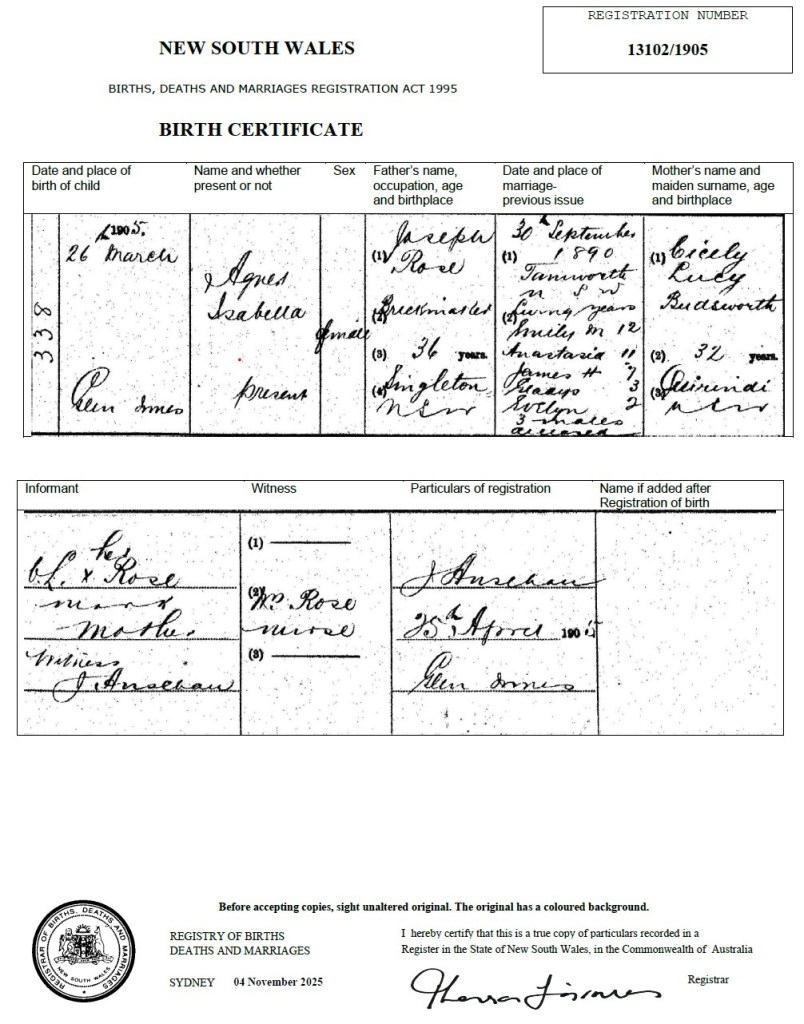 REGISTRATION NUMBER
13102/1905
NEW SOUTH WALES
BIRTHS, DEATHS AND MARRIAGES REGISTRATION ACT 1995
BIRTH CERTIFICATE
Date and place of
birth of child
Name and whether
present or not
Sex
Father's name,
occupation, age
and birthplace
Date and place of
marriage-
previous issue
Mother's name and
maiden surname, age
and birthplace
338
1905.
26 March
Glen Innes
Agnes
Isabella
present
female
(1) Joseph
Rose
(2) Brickmaker
(3) 36 years.
(4) Singleton
NSW
30th September
(1) 1890
Tamworth
N S W
(2) Living years
Emily M 12
Anastasia 11
James H 7
Gladys 3
Evelyn 2
3 males
deceased
(1) Cicely
Lucy
Budsworth
(2) 32 years.
(3) Quirindi
NSW
Informant
Witness
Particulars of registration
Name if added after
Registration of birth
her
C.L. x Rose
mark
Mother
Witness
(1)
(2) Mrs. Rose
nurse
(3)
25th April 1905
Glen Innes
Before accepting copies, sight unaltered original. The original has a coloured background.
REGISTRAR OF BIRTHS, DEATHS AND MARRIAGES
NEW SOUTH WALES
REGISTRY OF BIRTHS
DEATHS AND MARRIAGES
SYDNEY 04 November 2025
I hereby certify that this is a true copy of particulars recorded in a
Register in the State of New South Wales, in the Commonwealth of Australia
Registrar